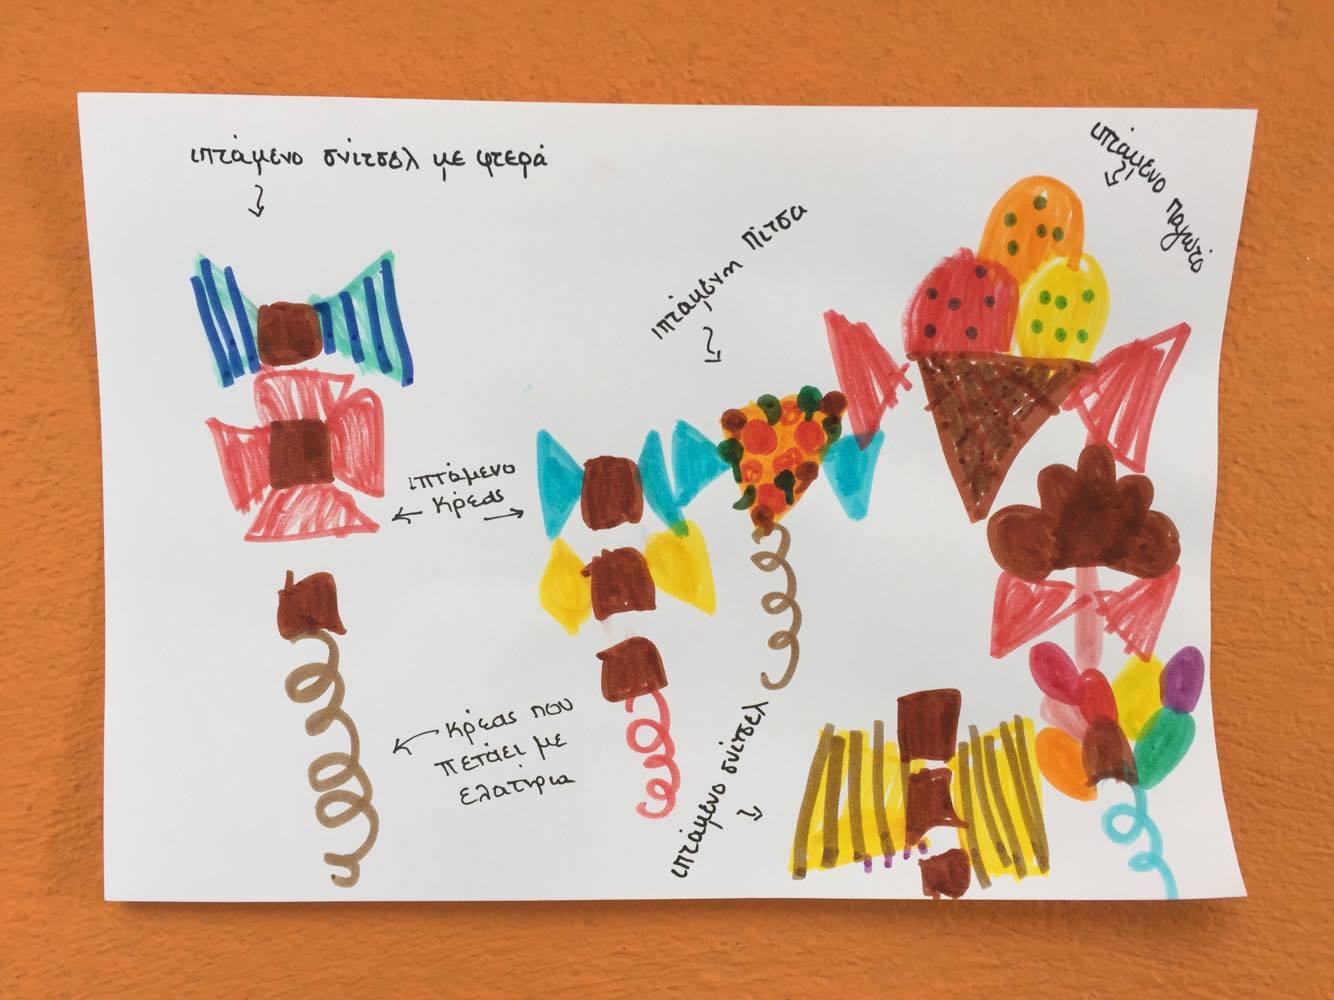 ιπτάμενο σνίτσελ με φτερά
ιπτάμενη πίτσα
ιπτάμενο παγωτό
ιπτάμενο
κρέας
κρέας που
πετάει με
ελατήρια
ιπτάμενο σνίτσελ